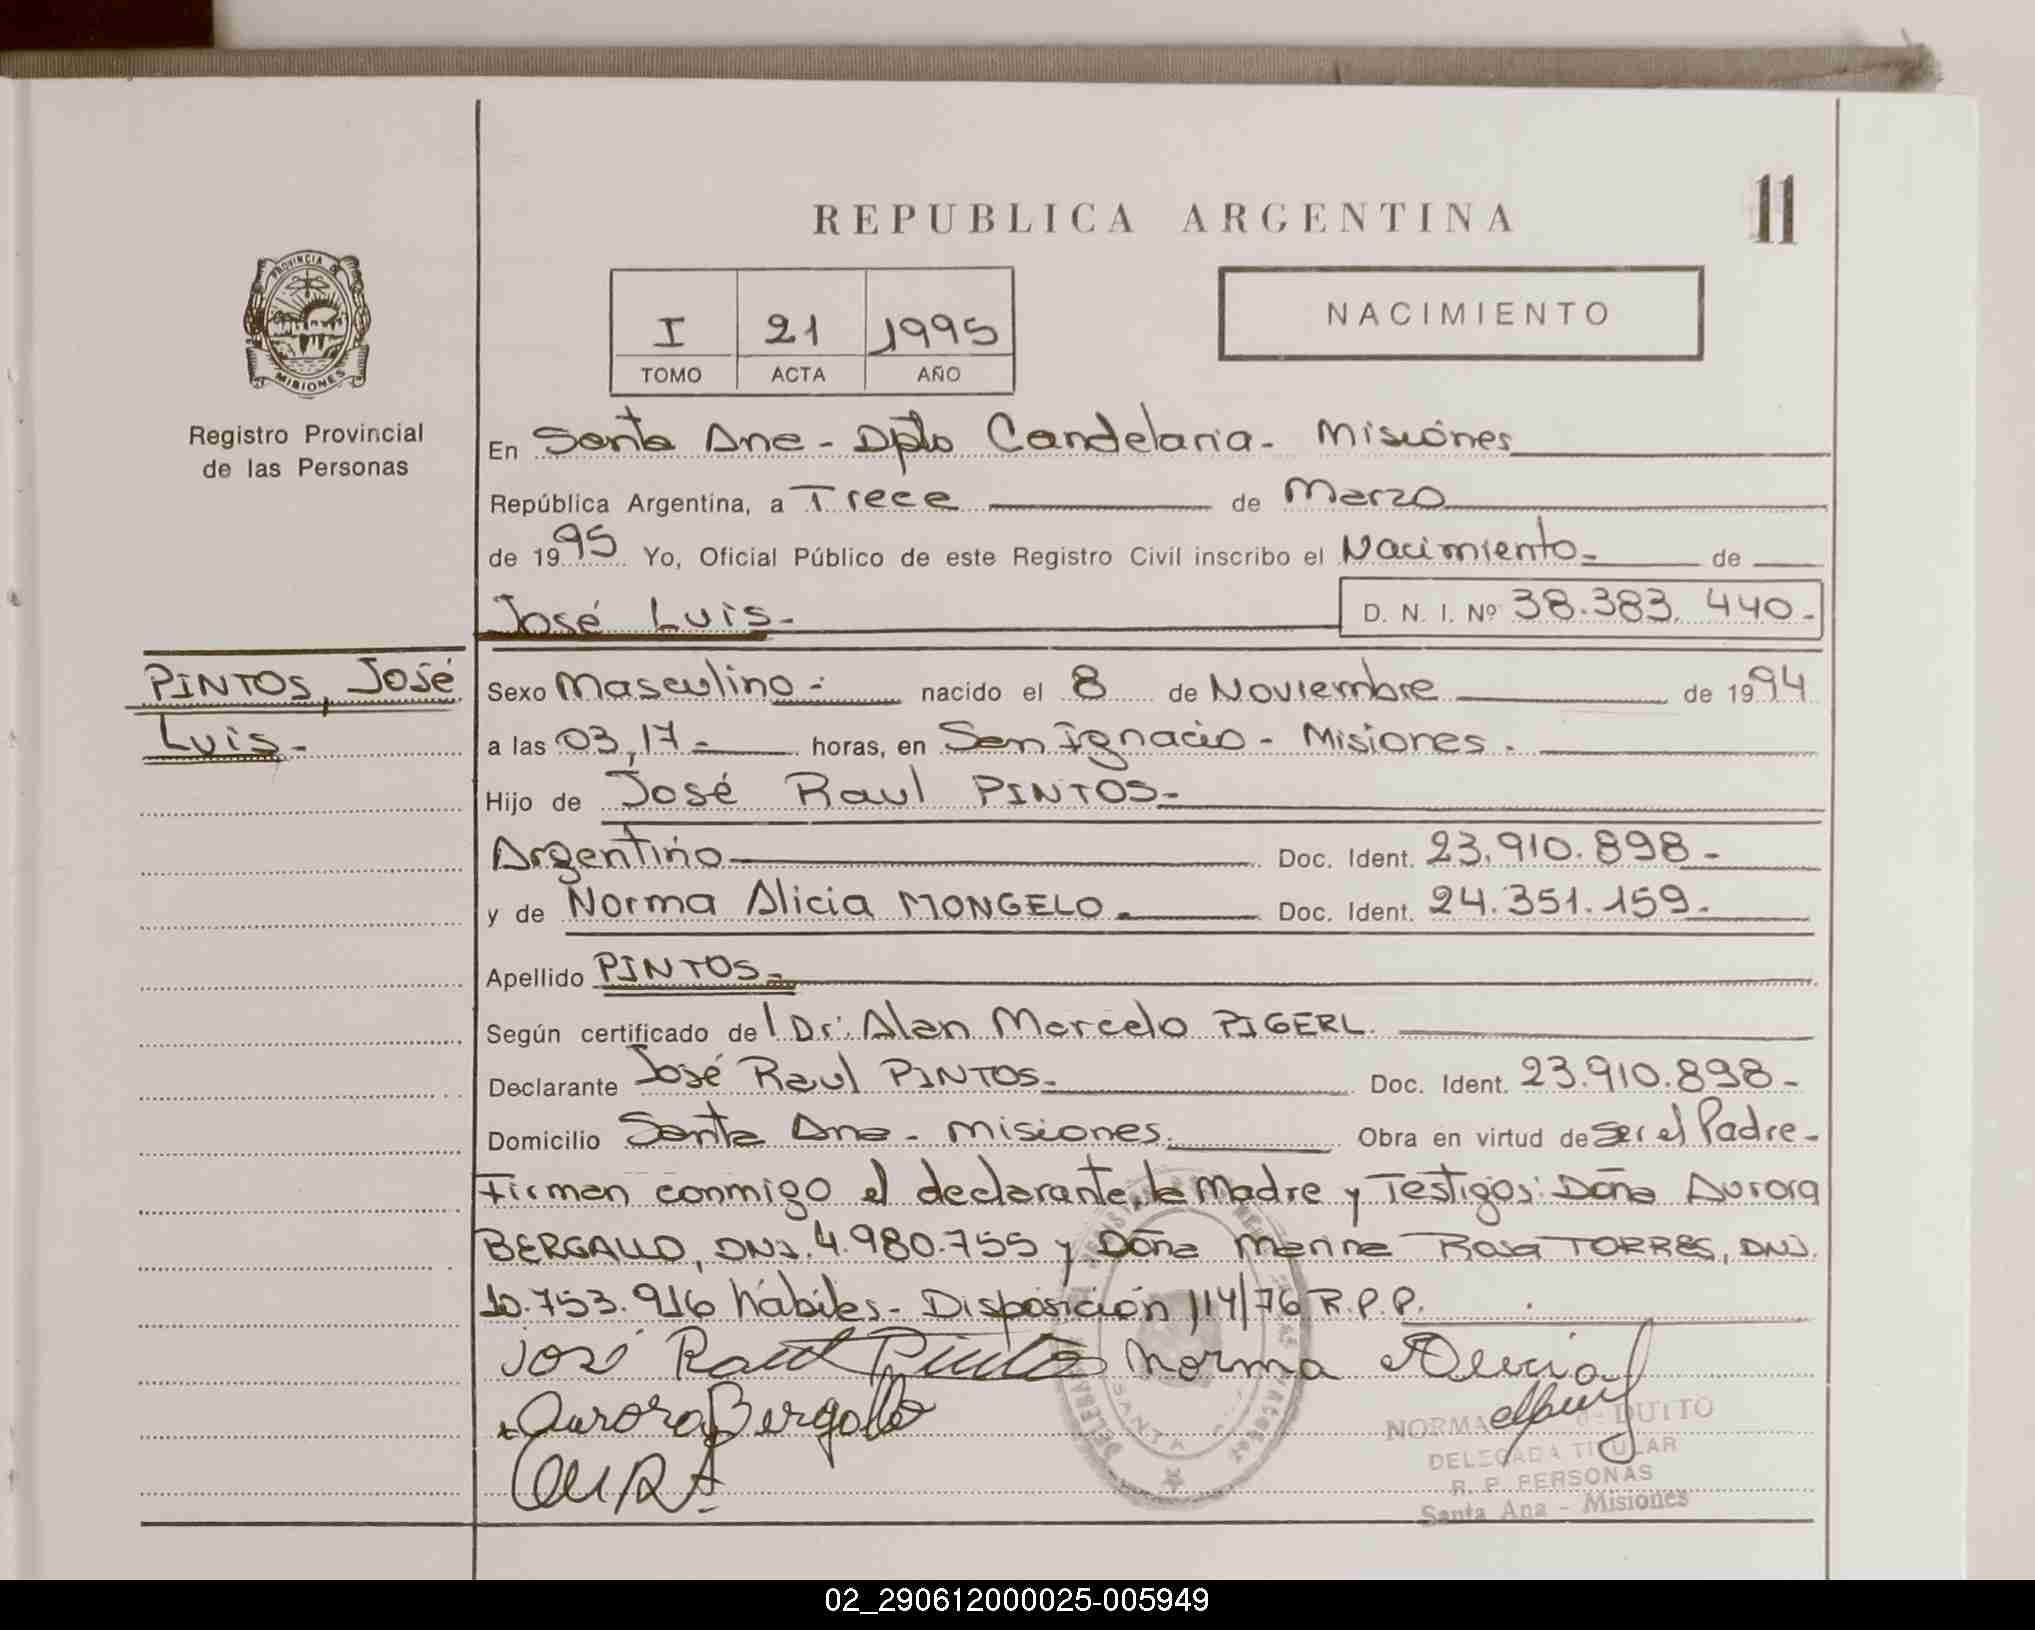 11
REPUBLICA ARGENTINA
PROVINCIA DE
MISIONES
I 21 1995
TOMO ACTA AÑO
NACIMIENTO
Registro Provincial
de las Personas
En Santa Ana - Dpto Candelaria - Misiones
República Argentina, a Trece de Marzo
de 1995 Yo, Oficial Público de este Registro Civil inscribo el Nacimiento - de
José Luis - D. N. I. Nº 38.383.440 -
PINTOS, José
Luis -
Sexo Masculino - nacido el 8 de Noviembre de 1994
a las 03,17 - horas, en San Ignacio - Misiones.
Hijo de José Raul PINTOS -
Argentino Doc. Ident. 23.910.898 -
y de Norma Alicia MONGELO - Doc. Ident. 24.351.159 -
Apellido PINTOS -
Según certificado del Dr. Alan Marcelo PIGERL.
Declarante José Raul PINTOS - Doc. Ident. 23.910.898 -
Domicilio Santa Ana - Misiones. Obra en virtud de ser el Padre -
Firman conmigo el declarante, la Madre y Testigos: Doña Aurora
BERGALLO, DNI. 4.980.755 y Doña Marina Rosa TORRES, DNI.
10.753.916 hábiles - Disposición 114/76 R.P.P.
José Raul Pintos Norma Alicia
Aurora Bergallo
NORMA DUITO
DELEGADA TITULAR
R. P. PERSONAS
Santa Ana - Misiones
SANTA
02_290612000025-005949